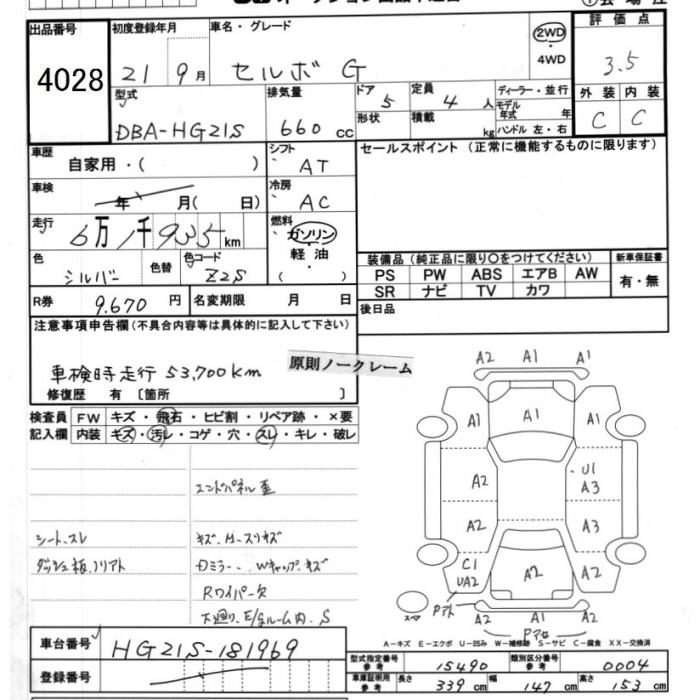 出品番号 初度登録年月 車名・グレード 2WD 評価点
4028 21 9月 セルボ G 4WD 3.5
型式 排気量 ドア 5 定員 4人 ディーラー・並行 外装 内装
DBA-HG21S 660 cc 形状 積載 kg モデル年式 年 C C
ハンドル 左・右
車歴 自家用・( ) シフト AT セールスポイント (正常に機能するものに限ります)
車検 年 月( 日) 冷房 AC
走行 6万1千935km 燃料 ガソリン
軽油
色 シルバー 色替 色コード Z2S 装備品 (純正品に限り○をつけてください) 新車保証書
PS PW ABS エアB AW 有・無
SR ナビ TV カワ
R券 9.670円 名変期限 月 日 後日品
注意事項申告欄(不具合内容等は具体的に記入して下さい)
車検時走行 53,700km
原則ノークレーム
修復歴 有 〔箇所 〕
検査員 FW キズ・飛石・ヒビ割・リペア跡・×要
記入欄 内装 キズ・汚レ・コゲ・穴・スレ・キレ・破レ
エンドパネル歪
シート.スレ キズ.
ダッシュ板.ノリアト Dミラー.Wキャップ.キズ
Rワイパー欠
下廻り.E/gルーム内.S
A2 A1 A1
A1 A1 A1
A2 U1
A3
A2 A3
C1
UA2 A2 A2
スペア
A2 A1 A2
A-キズ E-エクボ U-凹み W-補修跡 S-サビ C-腐食 XX-交換済
車台番号 HG21S-181969
登録番号
型式指定番号 参考 15490 類別区分番号 参考 0004
車庫証明用 参考 長さ 339 cm 幅 147 cm 高さ 153 cm